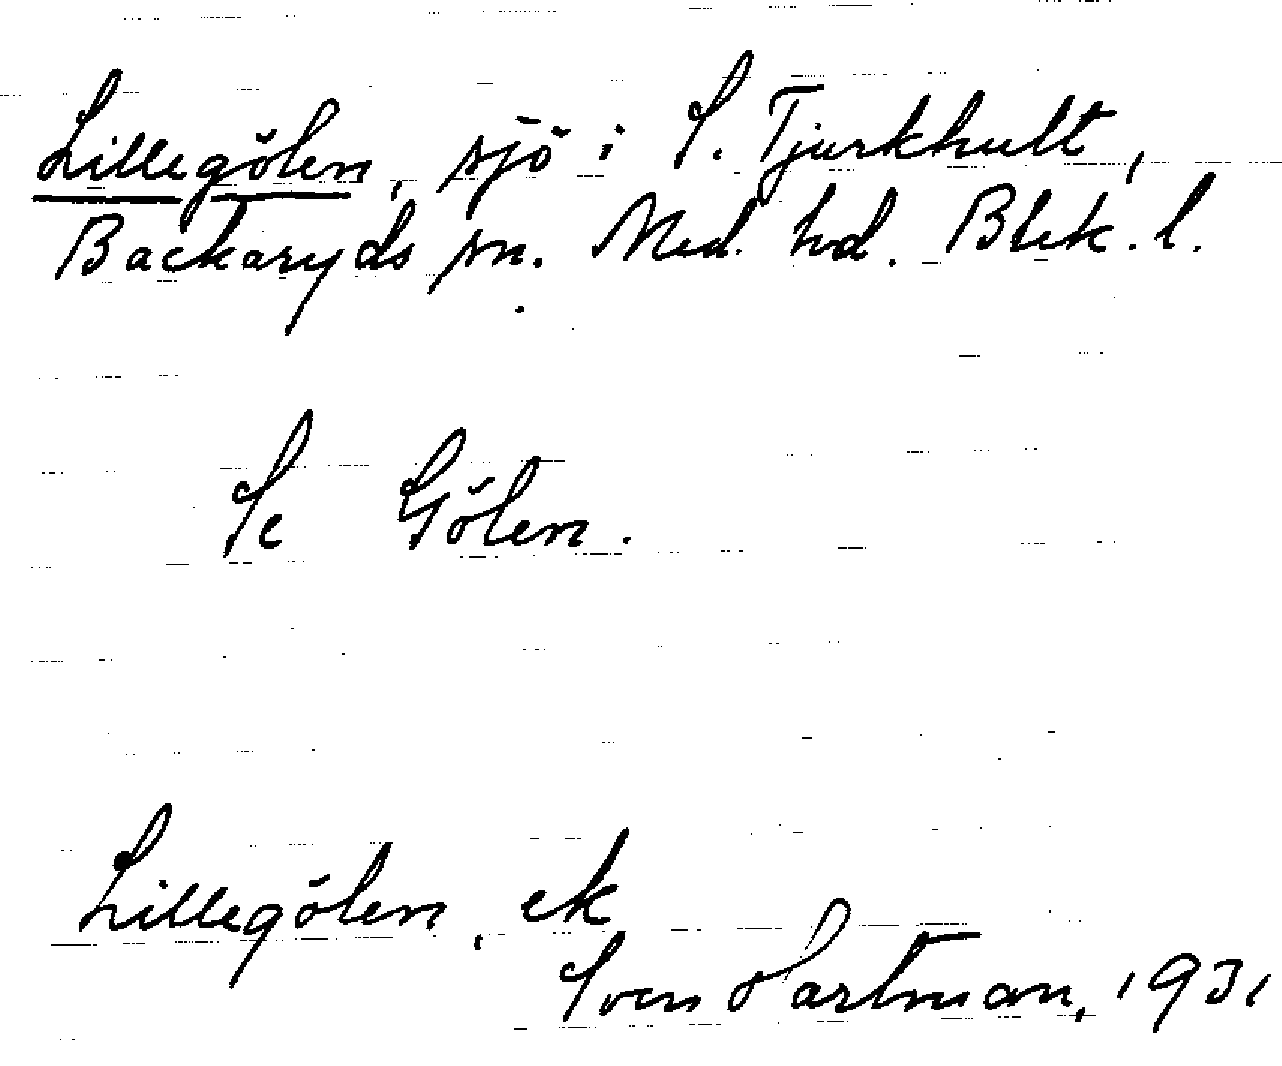 Lillegölen, sjö i S. Tjurkhult,
Backaryds sn. Med. hd. Blek. l.
Se Gölen.
Lillegölen, ek
Sven Hartman, 1931